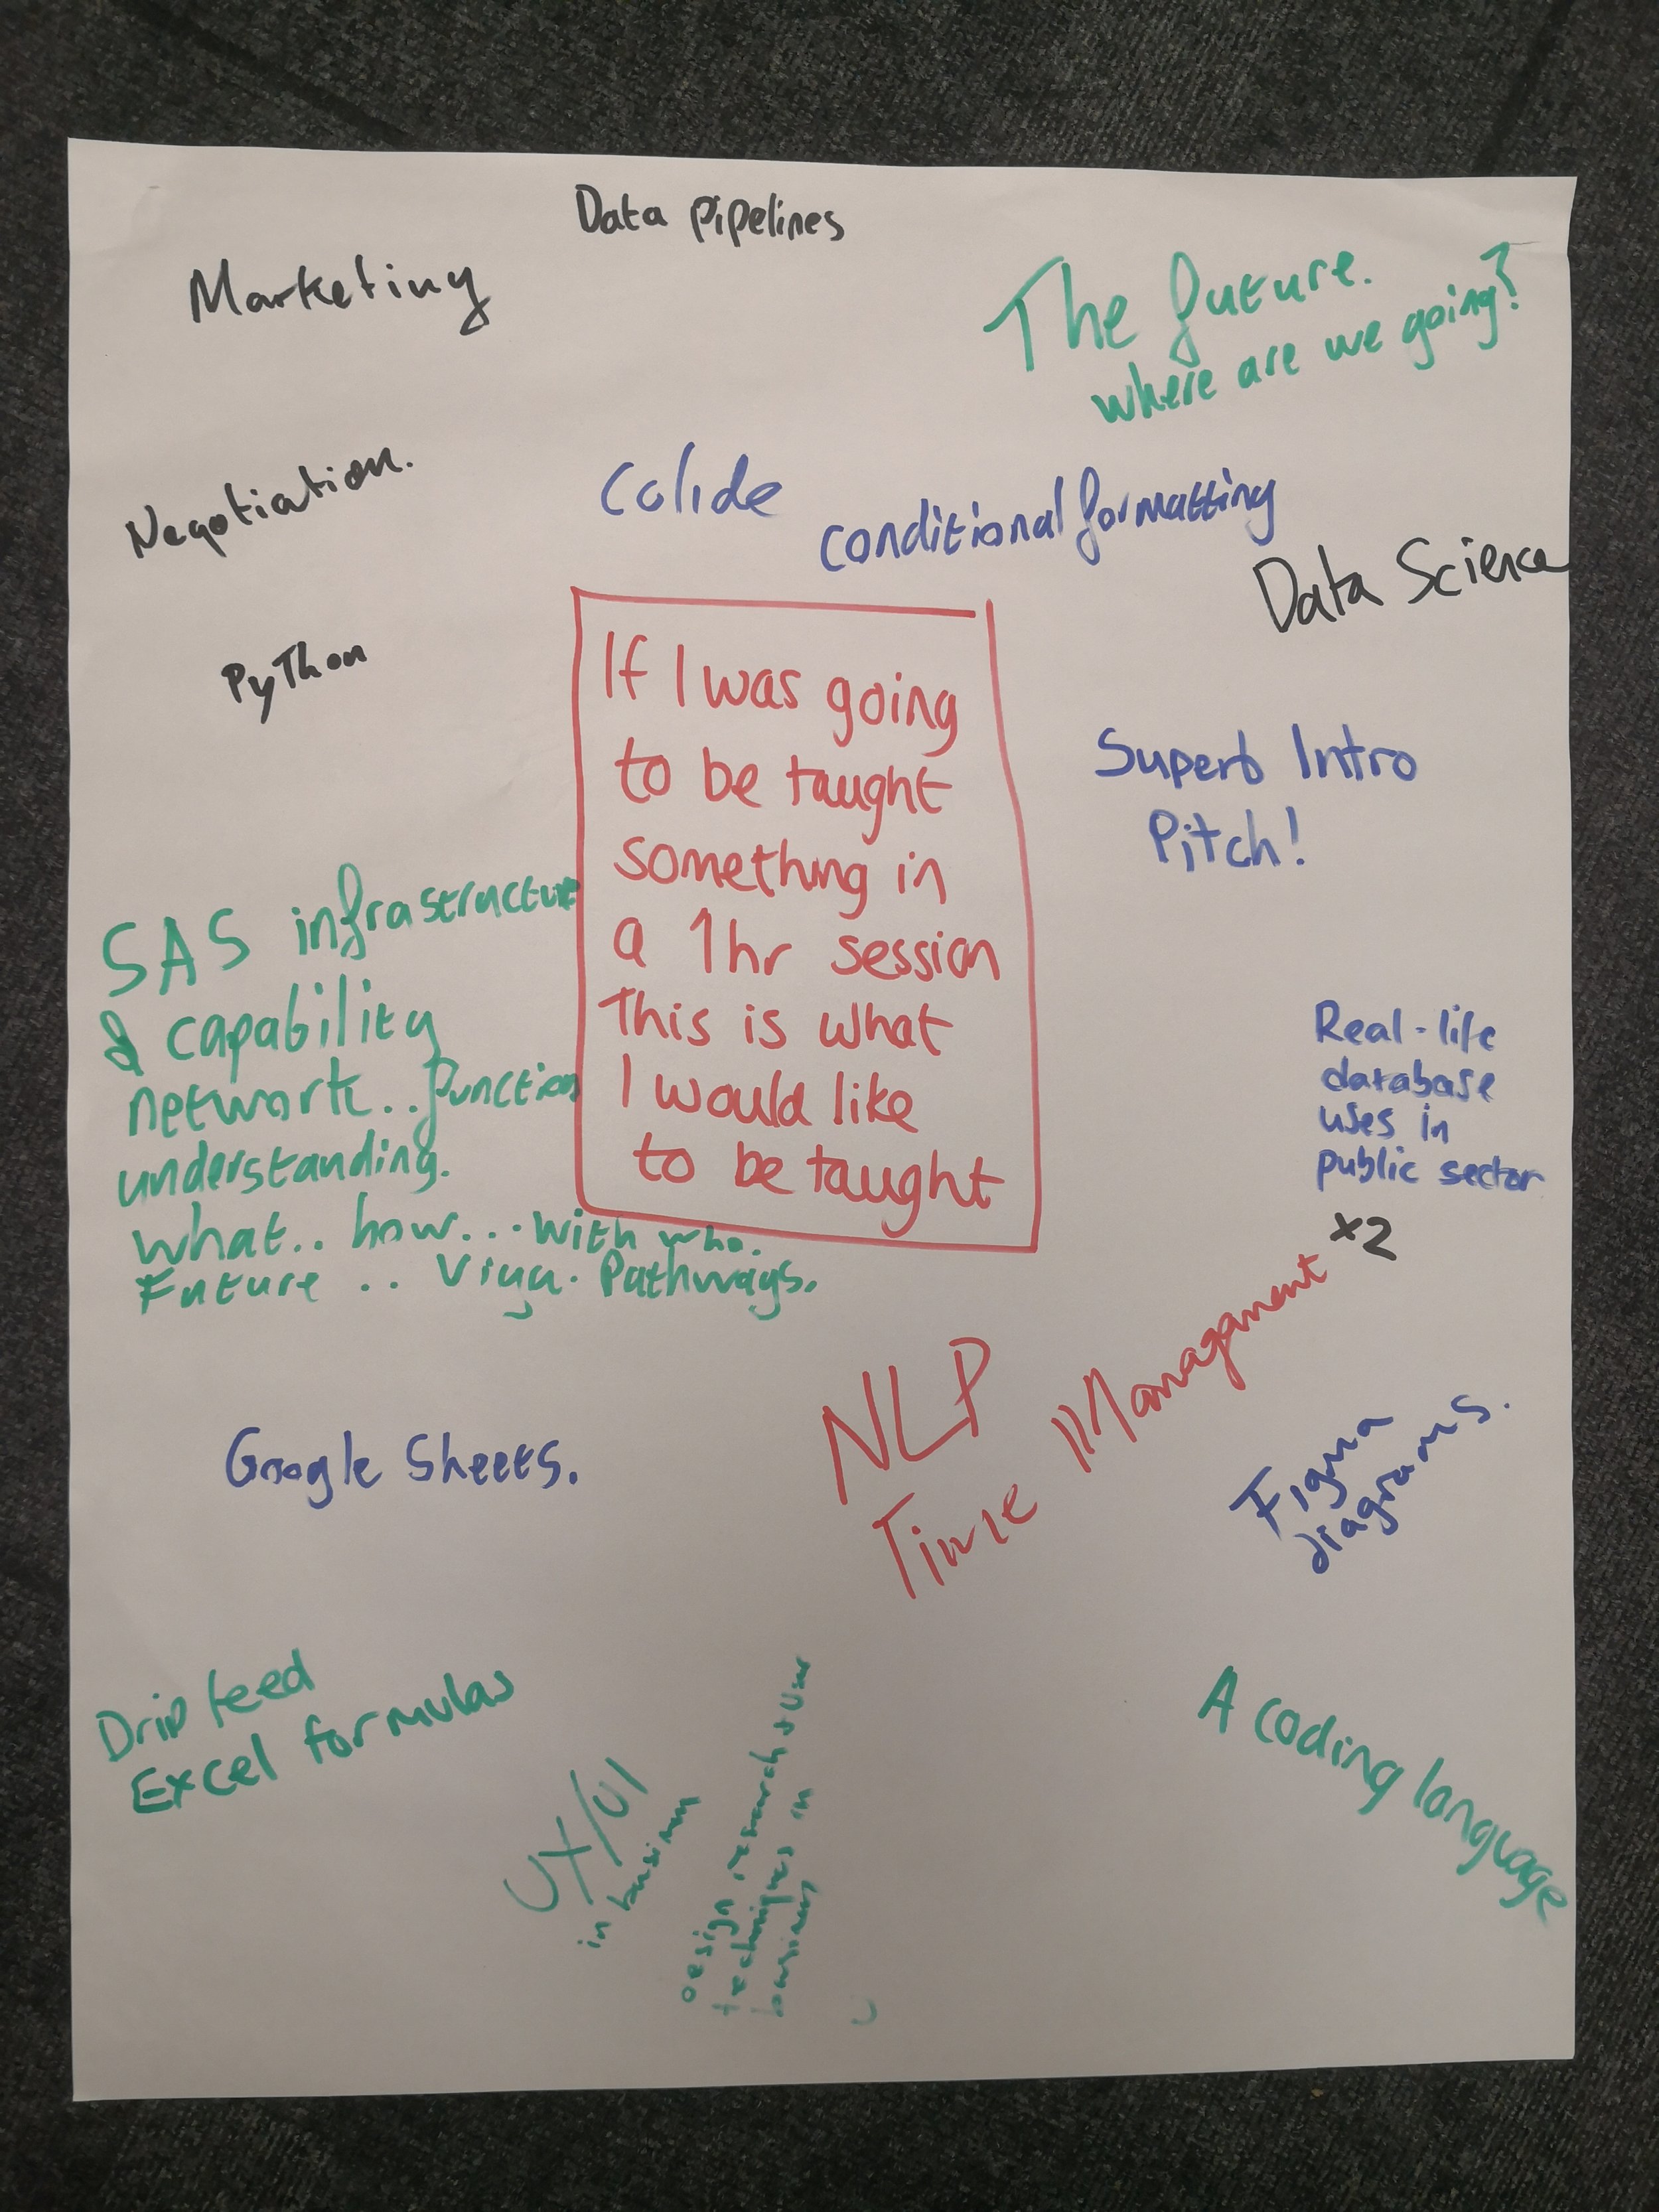 Data Pipelines
Marketing
The future.
where are we going?
Negotiation.
Colide
conditional formatting
Data Science
PyThon
If I was going
to be taught
something in
a 1hr session
This is what
I would like
to be taught
Superb Intro
Pitch!
SAS infrastructure
& capability
network.. function
understanding.
what.. how... with who.
Future .. Pathways.
Real-life
database
uses in
public sector
x2
NLP
Time Managament
Google Sheets.
Figma
diagrams.
Drip feed
Excel formulas
UX/UI
in business
Design research & User
techniques in
business
A coding language